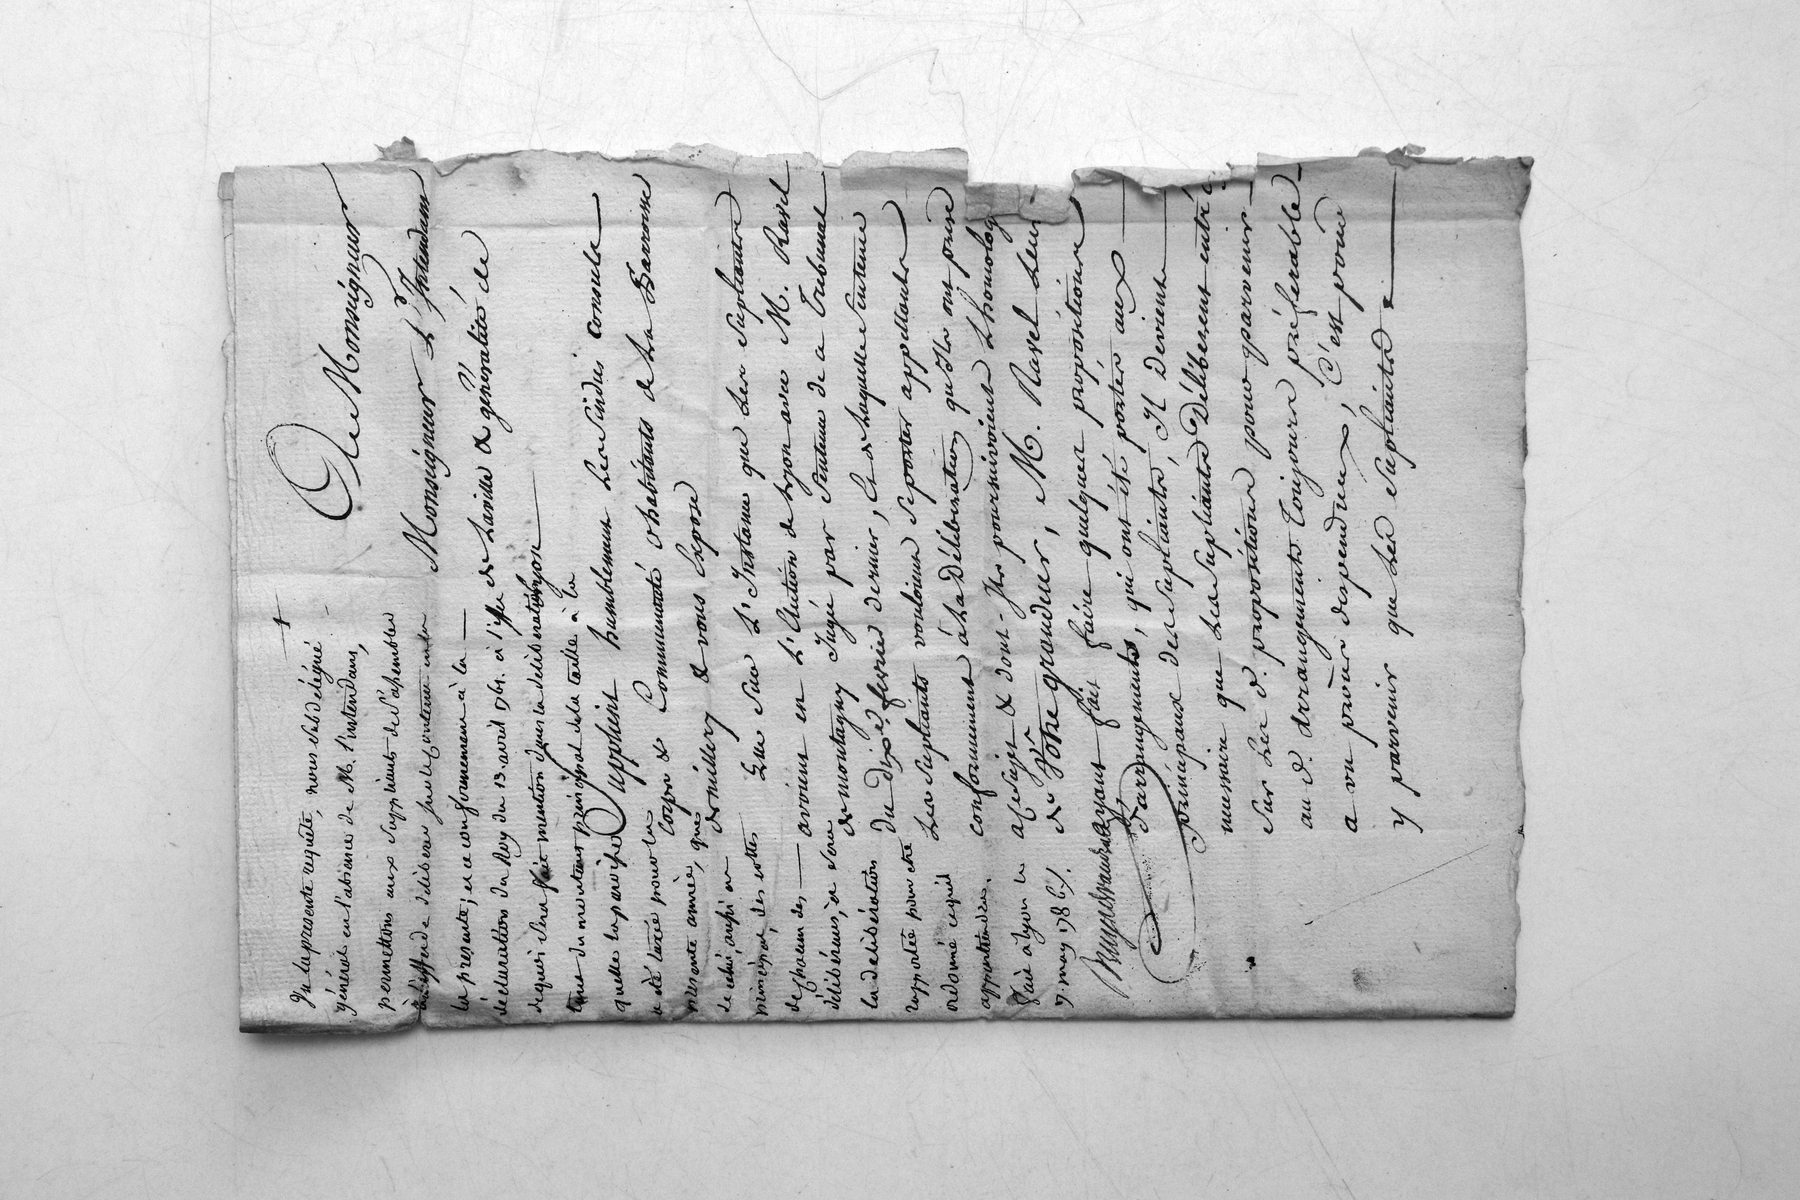 A Monseigneur
Monseigneur L'Intendant
de La ville & généralité de
Lyon
Supplient humblement Les Sindic consuls
corps & Communauté & habitants de La Baronnie
de millery & vous Exposent
que sur L'Instance que Les supliants
avoient en L'Election de Lyon avec M. Ravel
de montagny Jugée par Sentence de ce Tribunal
du dix fevrier dernier, & de Laquelle Sentence
Les supliants vouloient se porter appellants
conformement à La Délibération qu'ils ont prise
a ce sujet & dont Ils poursuivoient L'homolog
de Vôtre grandeur, M. Ravel Leur
ayant fait faire quelques propositions
d'arrangements, qui ont été portés aux
principaux des supliants, Il devient
necessaire que Les supliants Déliberent entre
sur Les d. propositions pour parvenir
au d. arrangements toujours préferable
a un procès dispendieux, C'est pour
y parvenir que Les supliants
Vu la presente requête, nous subdélégué
général en l'absence de M. l'intendant,
permettons aux suppliants de s'assembler
à l'effet de délibérer sur le contenu en la
la presente; et ce conformement à la
déclaration du Roy du 13. avril 1761. à l'effet
de quoi sera fait mention dans la délibération
tant du montant principal de la taille à la
quelle la paroisse
a été taxée pour la
presente année, que
de celui aussi en
principal, des cottes
de chacun des
délibérants, & sera
la délibération
rapportée pour être
ordonné ce qu'il
appartiendra.
fait à Lyon le
7. may 1786.